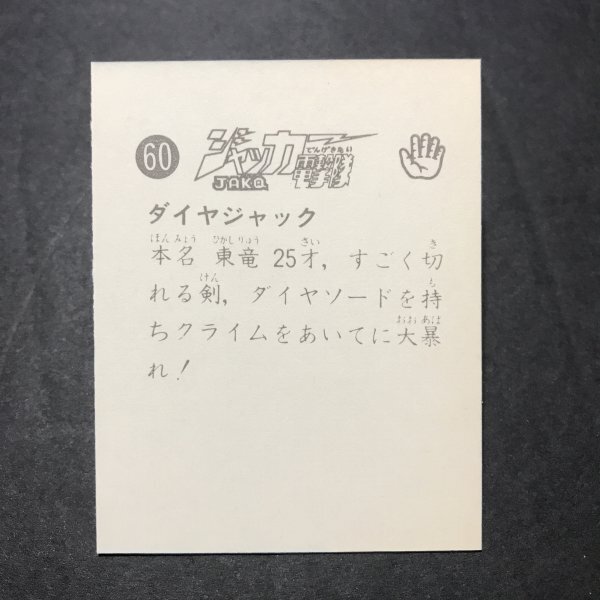 60
ジャッカー
でんげきたい
電撃隊
JAKQ
ダイヤジャック
ほんみょう ひがしりゅう さい き
本名 東竜 25才, すごく切
けん も
れる剣, ダイヤソードを持
おお あば
ちクライムをあいてに大暴
れ!